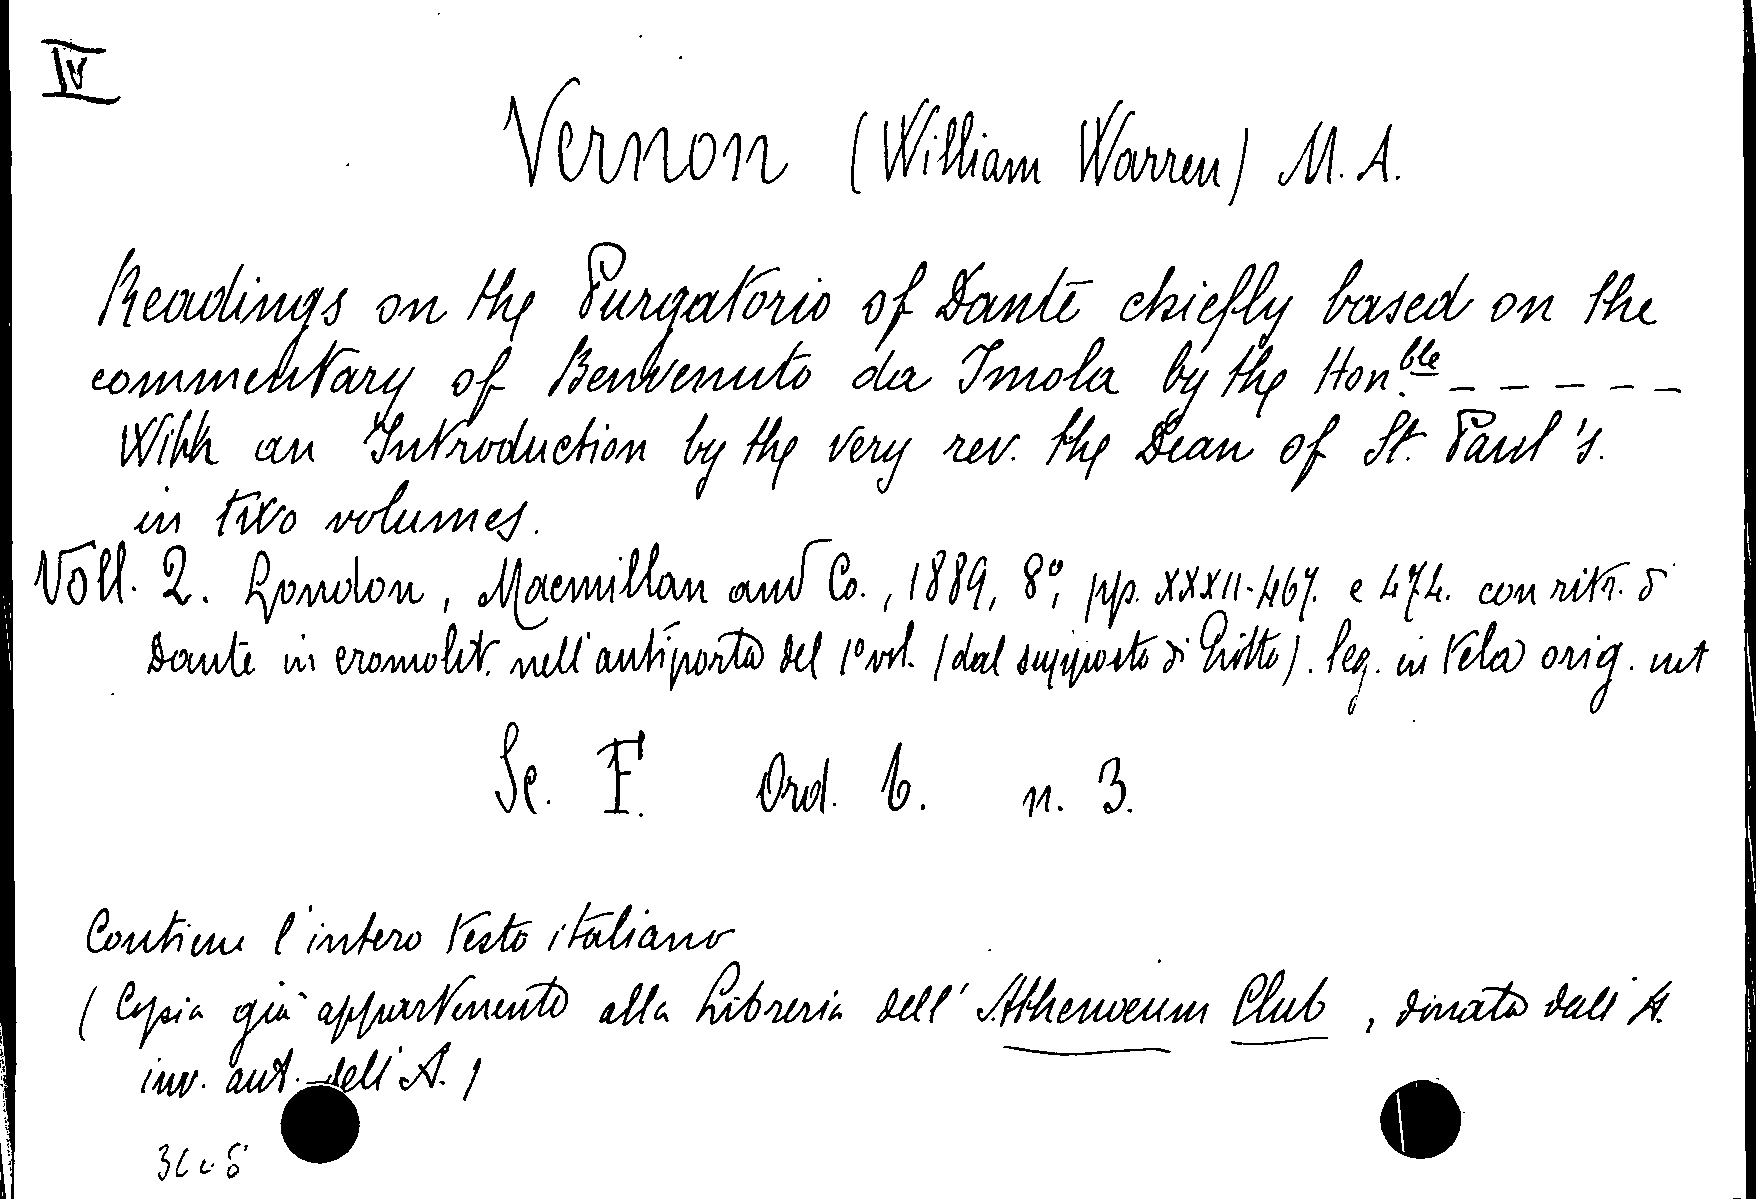 IV
Vernon (William Warren) M. A.
Readings on the Purgatorio of Dante chiefly based on the
commentary of Benvenuto da Imola by the Hon.ble _ _ _ _ _
With an Introduction by the very rev. the Dean of St. Paul's.
in two volumes.
Voll. 2. London, Macmillan and Co., 1889, 8°, pp. XXXII-467. e 474. con ritr. di
Dante in cromolit. nell'antiporta del 1° vol. (dal supposto di Giotto). leg. in tela orig. int
Sc. F. Ord. 6. n. 3.
Contiene l'intero testo italiano
(Copia già appartenente alla Libreria dell'Athenaeum Club, donata dall'A.
inv. aut. dell'A.)